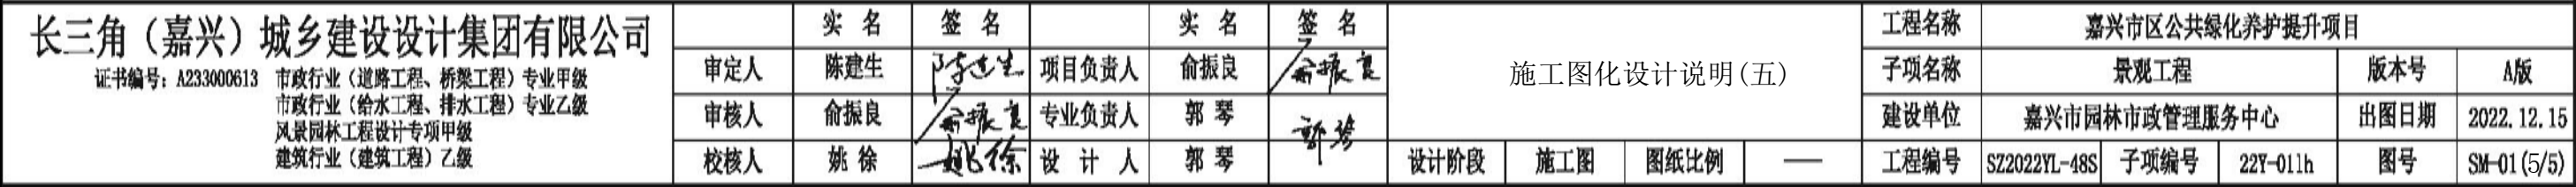 长三角（嘉兴）城乡建设设计集团有限公司
证书编号：A233000613 市政行业（道路工程、桥梁工程）专业甲级
市政行业（给水工程、排水工程）专业乙级
风景园林工程设计专项甲级
建筑行业（建筑工程）乙级
实 名 签 名 实 名 签 名
审定人 陈建生 陈建生 项目负责人 俞振良 俞振良
审核人 俞振良 俞振良 专业负责人 郭 琴 郭琴
校核人 姚 徐 姚徐 设 计 人 郭 琴
施工图化设计说明(五)
设计阶段 施工图 图纸比例 —
工程名称 嘉兴市区公共绿化养护提升项目
子项名称 景观工程 版本号 A版
建设单位 嘉兴市园林市政管理服务中心 出图日期 2022.12.15
工程编号 SZ2022YL-48S 子项编号 22Y-01lh 图号 SM-01(5/5)